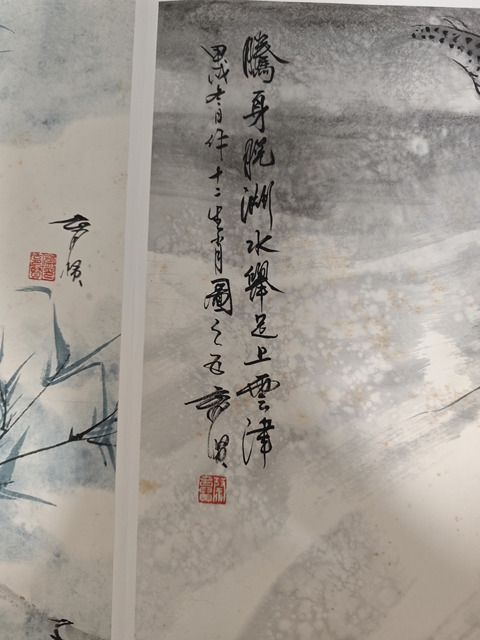 騰身脫湖水舉足上雲津
甲戌冬日作十二生肖圖之五